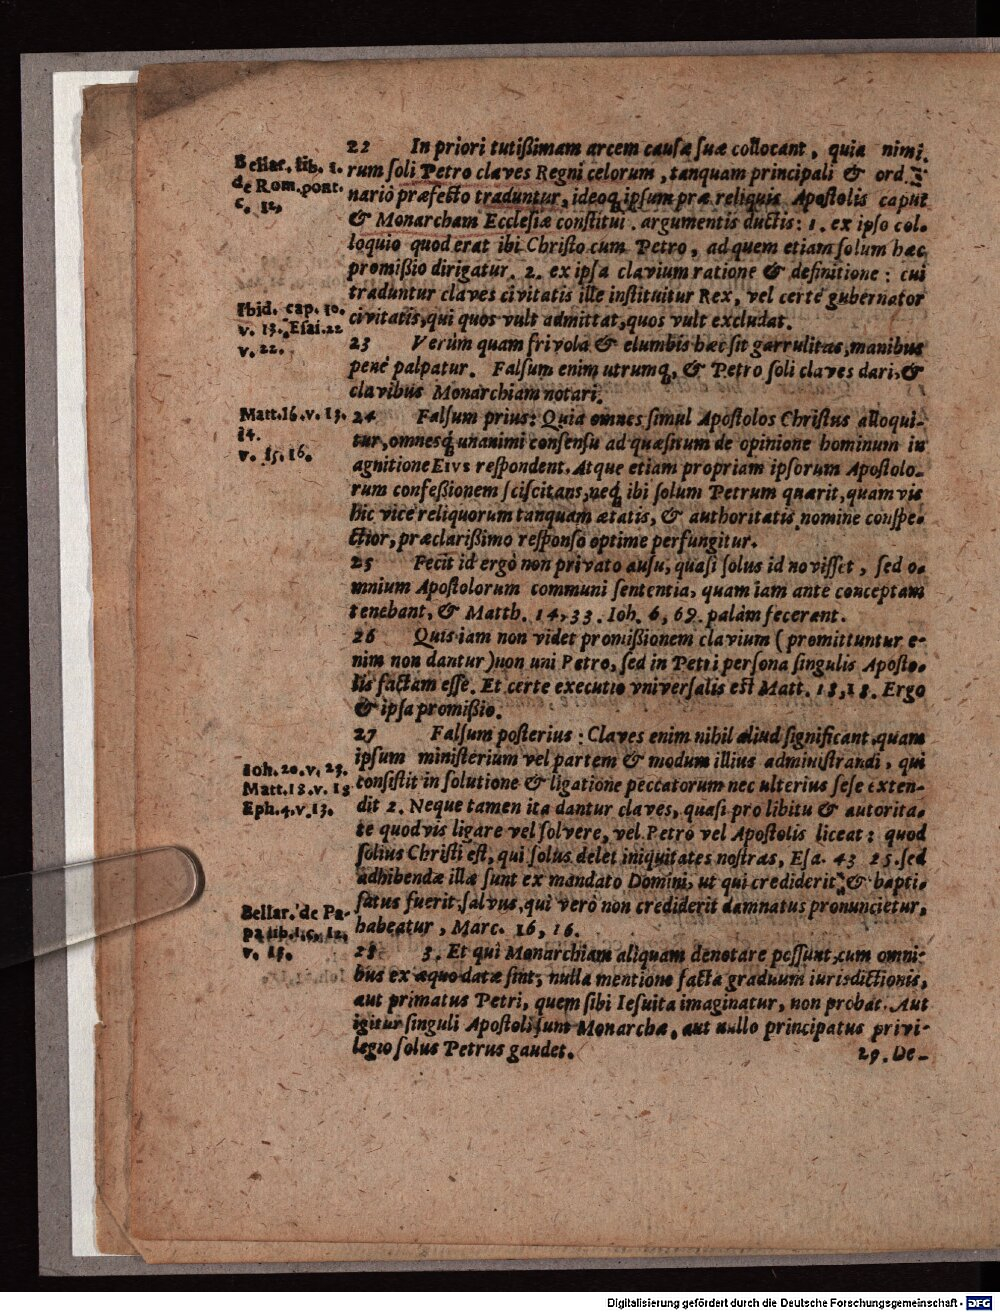 22 In priori tutißimam arcem causæ suæ collocant, quia nimi.
Bellar. lib. 1.
de Rom. pont.
c. 12,
rum soli Petro claves Regni celorum, tanquam principali & ord.
nario præfecto traduntur, ideoq; ipsum præ reliquis Apostolis caput
& Monarcham Ecclesiæ constitui. argumentis ductis: 1. ex ipso col-
loquio quod erat ibi Christo cum Petro, ad quem etiam solum hæc
promißio dirigatur. 2. ex ipsa clavium ratione & definitione: cui
traduntur claves civitatis ille instituitur Rex, vel certè gubernator
Ibid. cap. 10.
v. 13. Esai. 22
v. 22.
civitatis, qui quos vult admittat, quos vult excludat.
23 Verùm quam frivola & elumbis hæc sit garrulitas, manibus
penè palpatur. Falsum enim utrumq;, & Petro soli claves dari, &
clavibus Monarchiam notari.
Matt. 16. v. 13.
14.
v. 15. 16.
24 Falsum prius: Quia omnes simul Apostolos Christus alloqui-
tur, omnesq; unanimi consensu ad quæsitum de opinione hominum in
agnitione EIVS respondent. Atque etiam propriam ipsorum Apostolo-
rum confeßionem sciscitans, neq; ibi solum Petrum quærit, quamvis
hic vice reliquorum tanquam ætatis, & authoritatis nomine conspe-
ctior, præclarißimo responso optime perfungitur.
25 Fecit id ergò non privato ausu, quasi solus id novisset, sed o-
mnium Apostolorum communi sententia, quam iam ante conceptam
tenebant, & Matth. 14, 33. Ioh. 6, 69. palàm fecerant.
26 Quis iam non videt promißionem clavium (promittuntur e-
nim non dantur) non uni Petro, sed in Petri persona singulis Aposto-
lis factam esse. Et certe executio vniversalis est Matt. 18, 18. Ergo
& ipsa promißio.
27 Falsum posterius: Claves enim nihil aliud significant, quam
ipsum ministerium vel partem & modum illius administrandi, qui
Ioh. 20. v. 23.
Matt. 18. v. 18
Eph. 4. v. 13.
consistit in solutione & ligatione peccatorum nec ulterius sese exten-
dit 2. Neque tamen ita dantur claves, quasi pro libitu & autorita-
te quodvis ligare vel solvere, vel Petro vel Apostolis liceat: quod
solius Christi est, qui solus delet iniquitates nostras, Esa. 43 25. sed
adhibendæ illæ sunt ex mandato Domini, ut qui crediderit, & bapti-
satus fuerit, salvus, qui verò non crediderit damnatus pronuncietur,
Bellar. de Pa-
pa lib. 1. c. 12.
v. 15.
habeatur, Marc. 16, 16.
28 3. Et qui Monarchiam aliquam denotare possunt, cum omni-
bus ex æquo datæ sint, nulla mentione facta graduum iurisdictionis,
aut primatus Petri, quem sibi Iesuita imaginatur, non probat. Aut
igitur singuli Apostoli sunt Monarchæ, aut nullo principatus privi-
legio solus Petrus gaudet.
29. De-
Digitalisierung gefördert durch die Deutsche Forschungsgemeinschaft - DFG